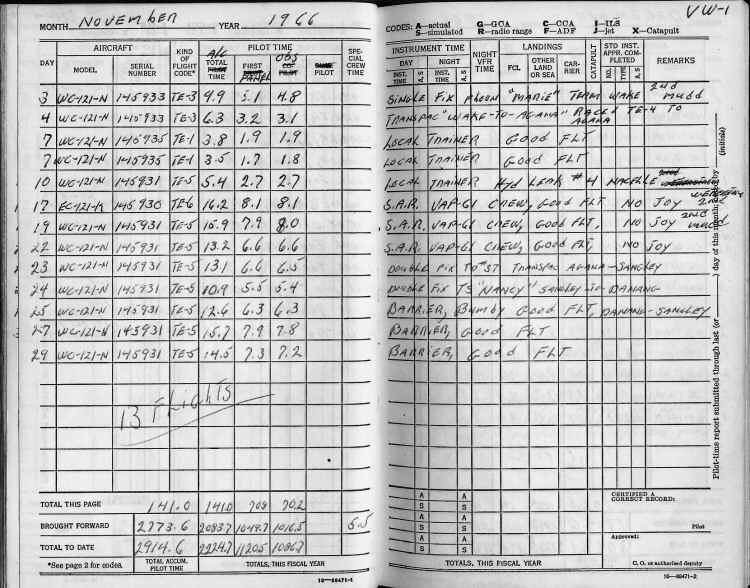 MONTH NOVEMBER YEAR 1966
AIRCRAFT KIND OF FLIGHT CODE* A/C PILOT TIME OBS SPE- CIAL CREW TIME
DAY MODEL SERIAL NUMBER TOTAL PILOT TIME FIRST PILOT PANEL CO- PILOT PILOT
3 WC-121-N 145933 TE-3 9.9 5.1 4.8
4 WC-121-N 145933 TE-3 6.3 3.2 3.1
7 WC-121-N 145935 TE-1 3.8 1.9 1.9
7 WC-121-N 145935 TE-1 3.5 1.7 1.8
10 WC-121-N 145931 TE-5 5.4 2.7 2.7
17 EC-121-K 145930 TE-6 16.2 8.1 8.1
19 WC-121-N 145931 TE-5 15.9 7.9 8.0
22 WC-121-N 145931 TE-5 13.2 6.6 6.6
23 WC-121-N 145931 TE-5 13.1 6.6 6.5
24 WC-121-N 145931 TE-5 10.9 5.5 5.4
25 WC-121-N 145931 TE-5 12.6 6.3 6.3
27 WC-121-N 145931 TE-5 15.7 7.9 7.8
29 WC-121-N 145931 TE-5 14.5 7.3 7.2
13 FLIGHTS
TOTAL THIS PAGE 141.0 141.0 70.8 70.2
BROUGHT FORWARD 2773.6 2083.7 1049.7 1016.5 5.5
TOTAL TO DATE 2914.6 2224.7 1120.5 1086.7
*See page 2 for codes. TOTAL ACCUM. PILOT TIME TOTALS, THIS FISCAL YEAR
16—60471-1
VW-1
CODES: A—actual G—GCA C—CCA I—ILS
S—simulated R—radio range F—ADF J—jet X—Catapult
INSTRUMENT TIME NIGHT VFR TIME LANDINGS CATAPULT STD INST. APPR. COM- PLETED REMARKS
DAY NIGHT FCL OTHER LAND OR SEA CAR- RIER
INST. TIME A, S INST. TIME A, S NO. TYPE A, S
SINGLE FIX "MARIE" TERM WAKE 2ND
TRANSPAC "WAKE-TO-AGANA" TE-4 TO AGANA
LOCAL TRAINER Good FLT
LOCAL TRAINER Good FLT
LOCAL TRAINER Hyd LEAK #4 NACELLE
S.A.R. VAP-61 CREW, Good FLT NO JOY 2ND
S.A.R. VAP-61 CREW, Good FLT, NO JOY 2ND
S.A.R. VAP-61 CREW, Good FLT, NO JOY
DOUBLE FIX TRANSPAC AGANA-SANGLEY
DOUBLE FIX TS "NANCY" SANGLEY-TO-DANANG
BARRIER, Bumby Good FLT, DANANG-SANGLEY
BARRIER, Good FLT
BARRIER, Good FLT
Pilot-time report submitted through last (or day of this month, by (initials)
A A CERTIFIED A CORRECT RECORD:
S S
A A Pilot
S S
A A Approved:
S S
TOTALS, THIS FISCAL YEAR C. O. or authorised deputy
16—60471-2